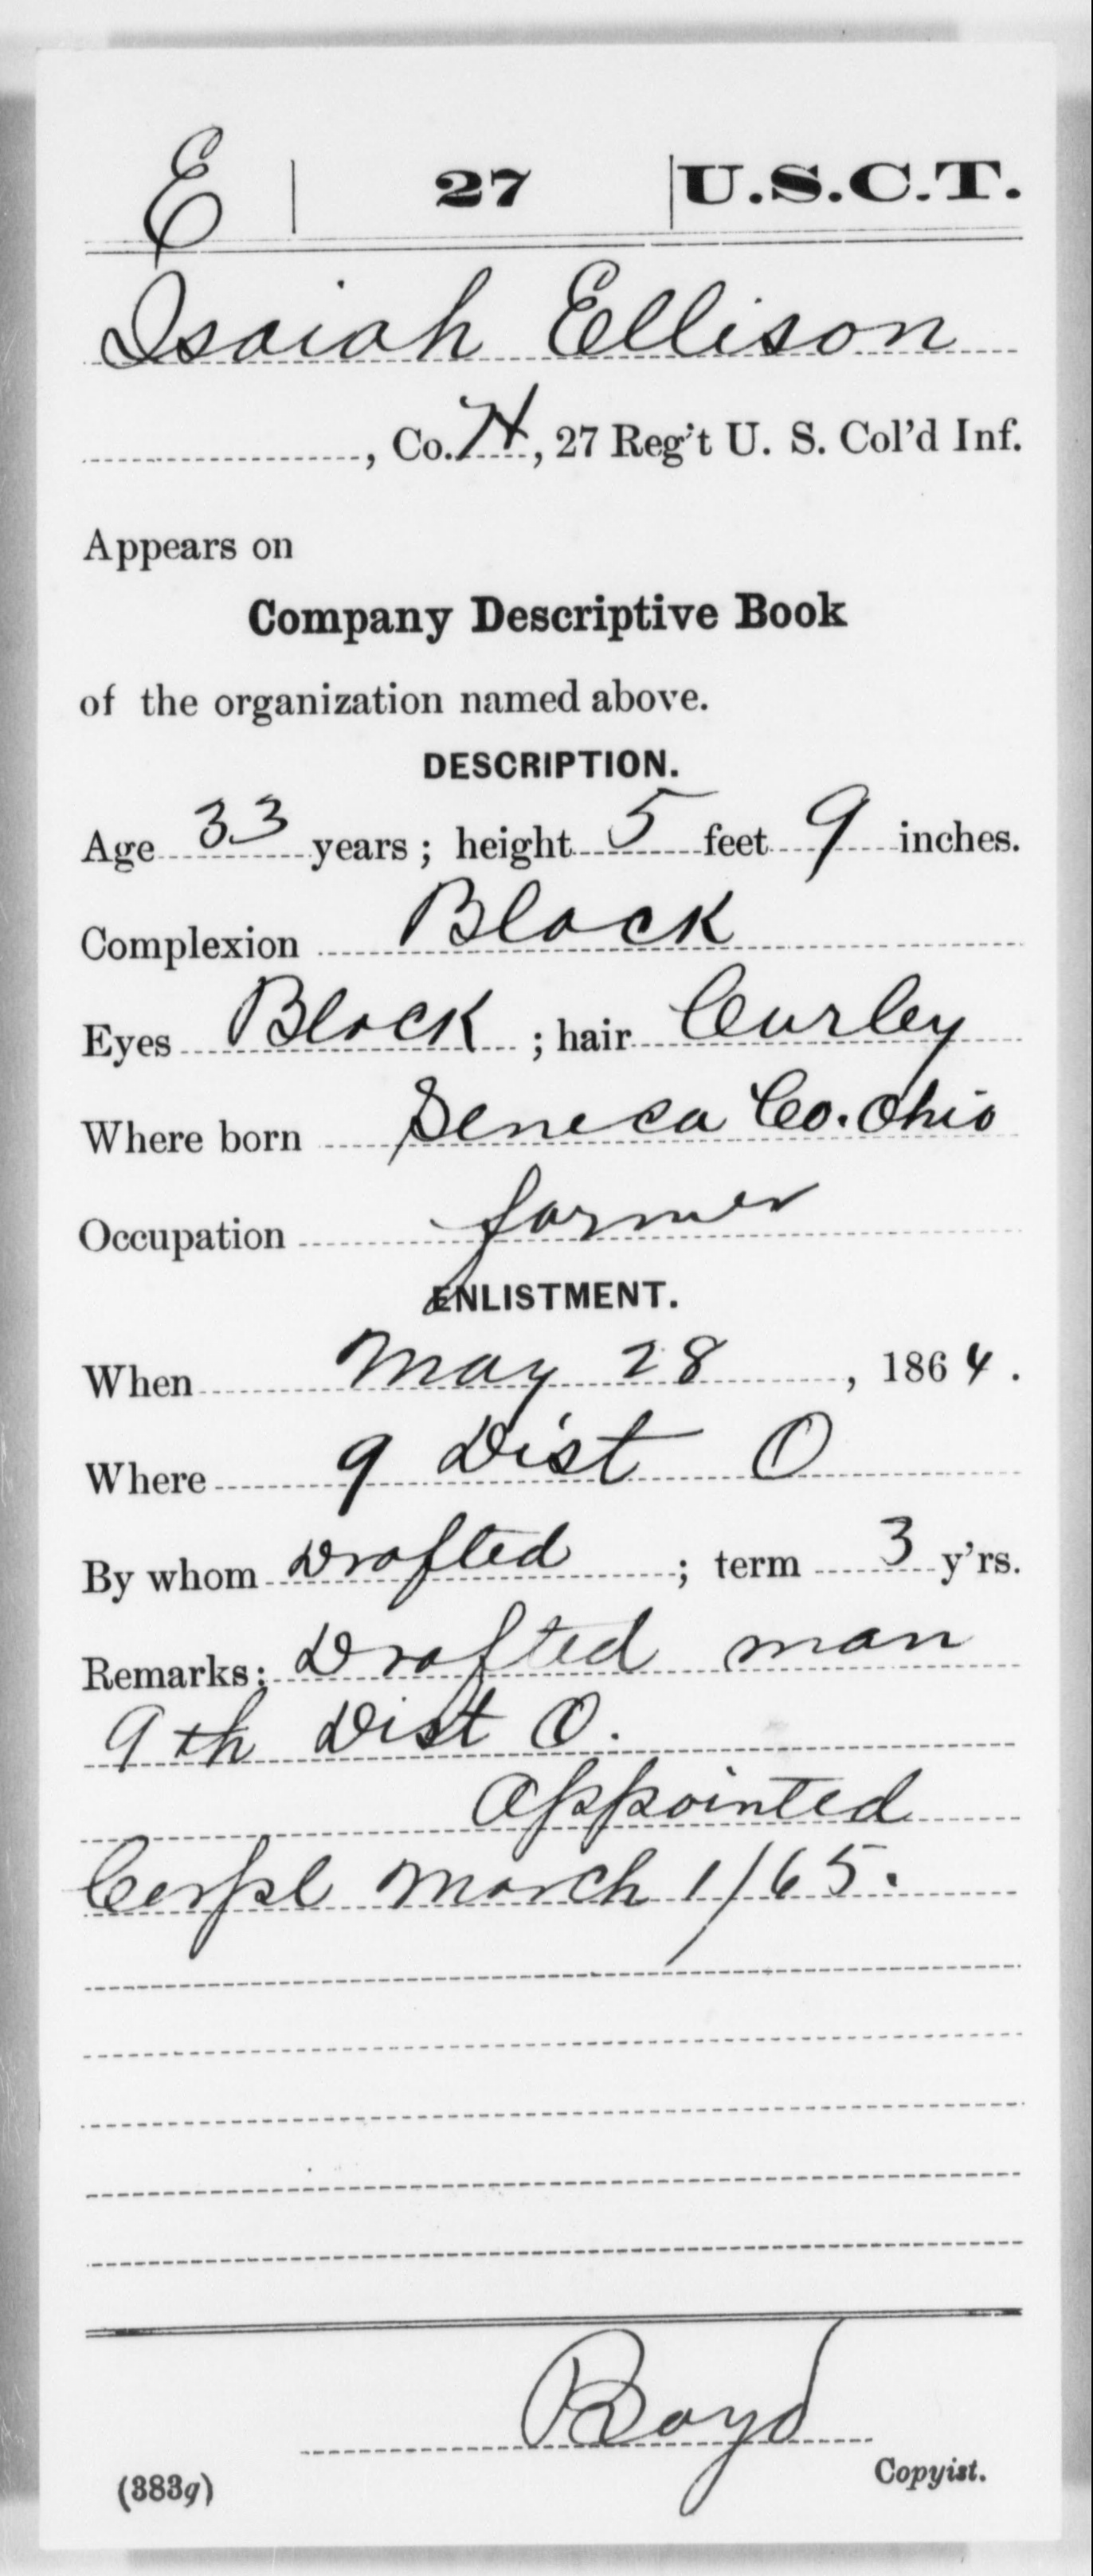 E | 27 | U.S.C.T.
Isaiah Ellison
, Co. H, 27 Reg't U. S. Col'd Inf.
Appears on
Company Descriptive Book
of the organization named above.
DESCRIPTION.
Age 33 years; height 5 feet 9 inches.
Complexion Black
Eyes Black; hair Curley
Where born Seneca Co. Ohio
Occupation farmer
ENLISTMENT.
When May 28, 1864.
Where 9 Dist O
By whom Drafted; term 3 y'rs.
Remarks: Drafted man
9th Dist O.
Appointed
Corpl March 1/65.
Boyd
(383g) Copyist.